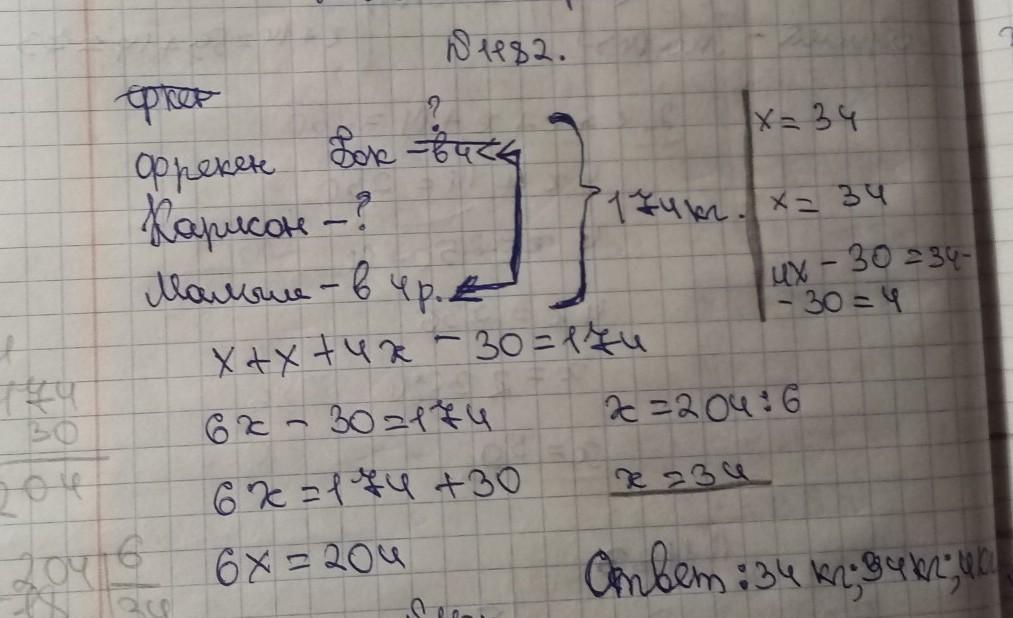 №1182.
фрек
?
фрекен Бок – в 4
Карлсон – ?
Малыш – в 4 р.
174 кг.
x = 34
x = 34
4x – 30 = 34 –
– 30 = 4
x + x + 4x – 30 = 174
6x – 30 = 174
x = 204 : 6
6x = 174 + 30
x = 34
6x = 204
Ответ: 34 кг; 34 кг; 4 кг
174
30
204
204 6
18 34